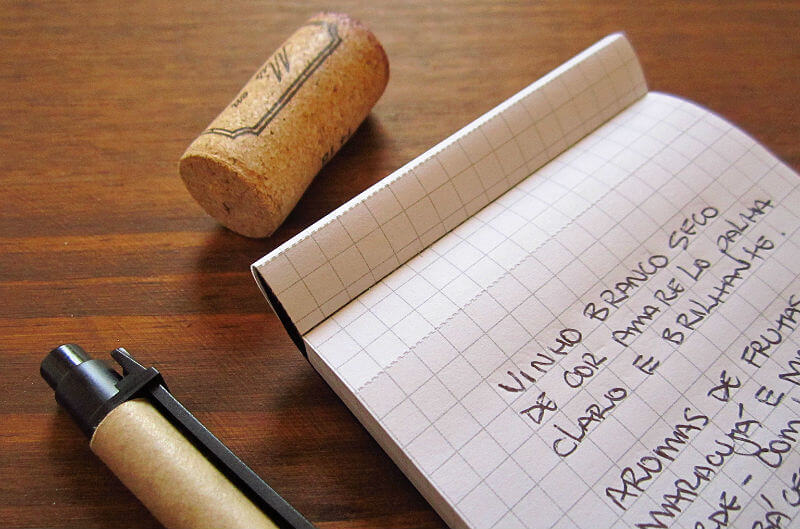 VINHO BRANCO SECO
DE COR AMARELO PALHA
CLARO E BRILHANTE.
AROMAS DE FRUTAS
MARACUJÁ E
COM